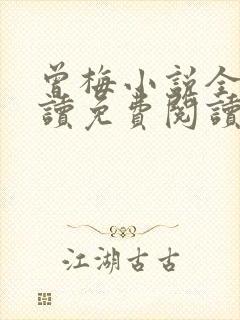 曾梅小説全
讀免費閱讀
江湖古古